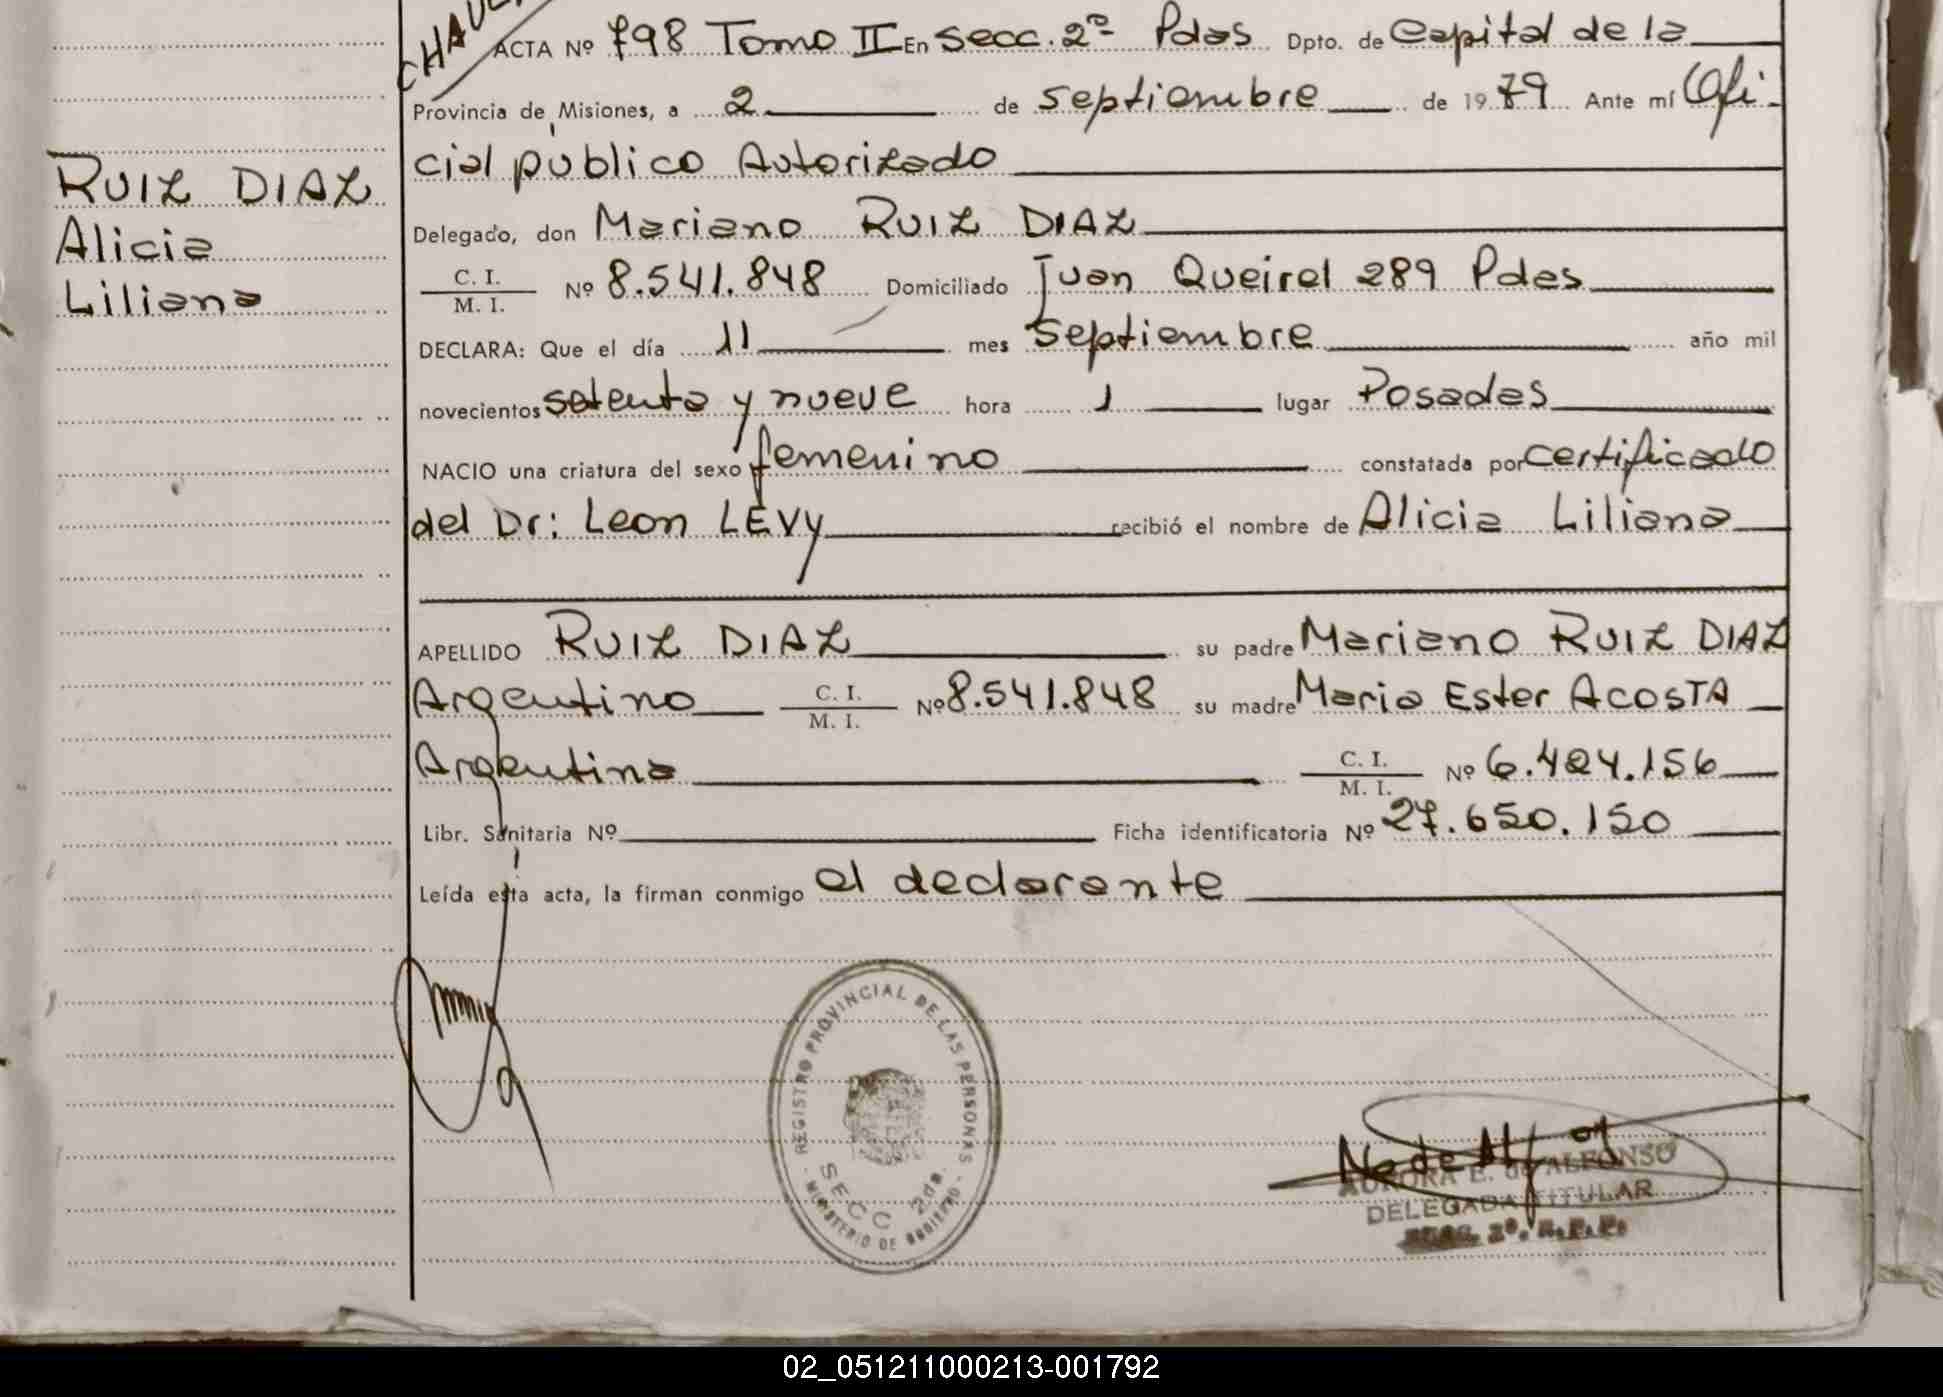 CHAU
ACTA Nº 798 Tomo II En Secc. 2ª Pdas Dpto. de Capital de la
Provincia de Misiones, a 2 de septiembre de 1979 Ante mí Ofi-
cial público Autorizado
RUIZ DIAZ
Alicia
Liliana
Delegado, don Mariano RUIZ DIAZ
C. I.
M. I. Nº 8.541.848 Domiciliado Juan Queirel 289 Pdas
DECLARA: Que el día 11 mes septiembre año mil
novecientos setenta y nueve hora 1 lugar Posadas
NACIO una criatura del sexo femenino constatada por certificado
del Dr: Leon LEVY recibió el nombre de Alicia Liliana
APELLIDO RUIZ DIAZ su padre Mariano RUIZ DIAZ
Argentino C. I. M. I. Nº 8.541.848 su madre Maria Ester ACOSTA
Argentina C. I. M. I. Nº 6.424.156
Libr. Sanitaria Nº Ficha identificatoria Nº 27.650.150
Leída esta acta, la firman conmigo el declarante
REGISTRO PROVINCIAL DE LAS PERSONAS
SECC 2da.
MINISTERIO DE GOBIERNO
AURORA E. de ALFONSO
DELEGADA TITULAR
SECC. 2º. R.P.P.
02_051211000213-001792